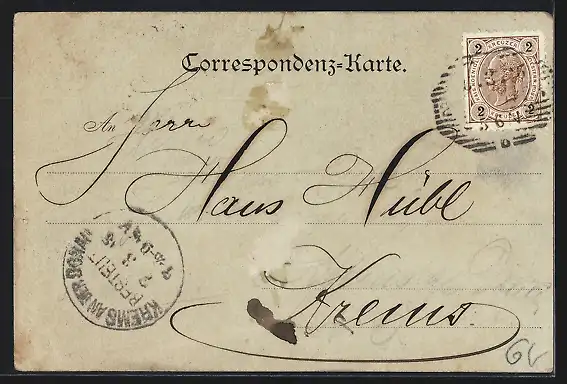 Correspondenz-Karte.
2 KREUZER 2
2 2
An Herrn
Hans Hübl
Krems.
KREMS AN DER DONAU
BESTELLT